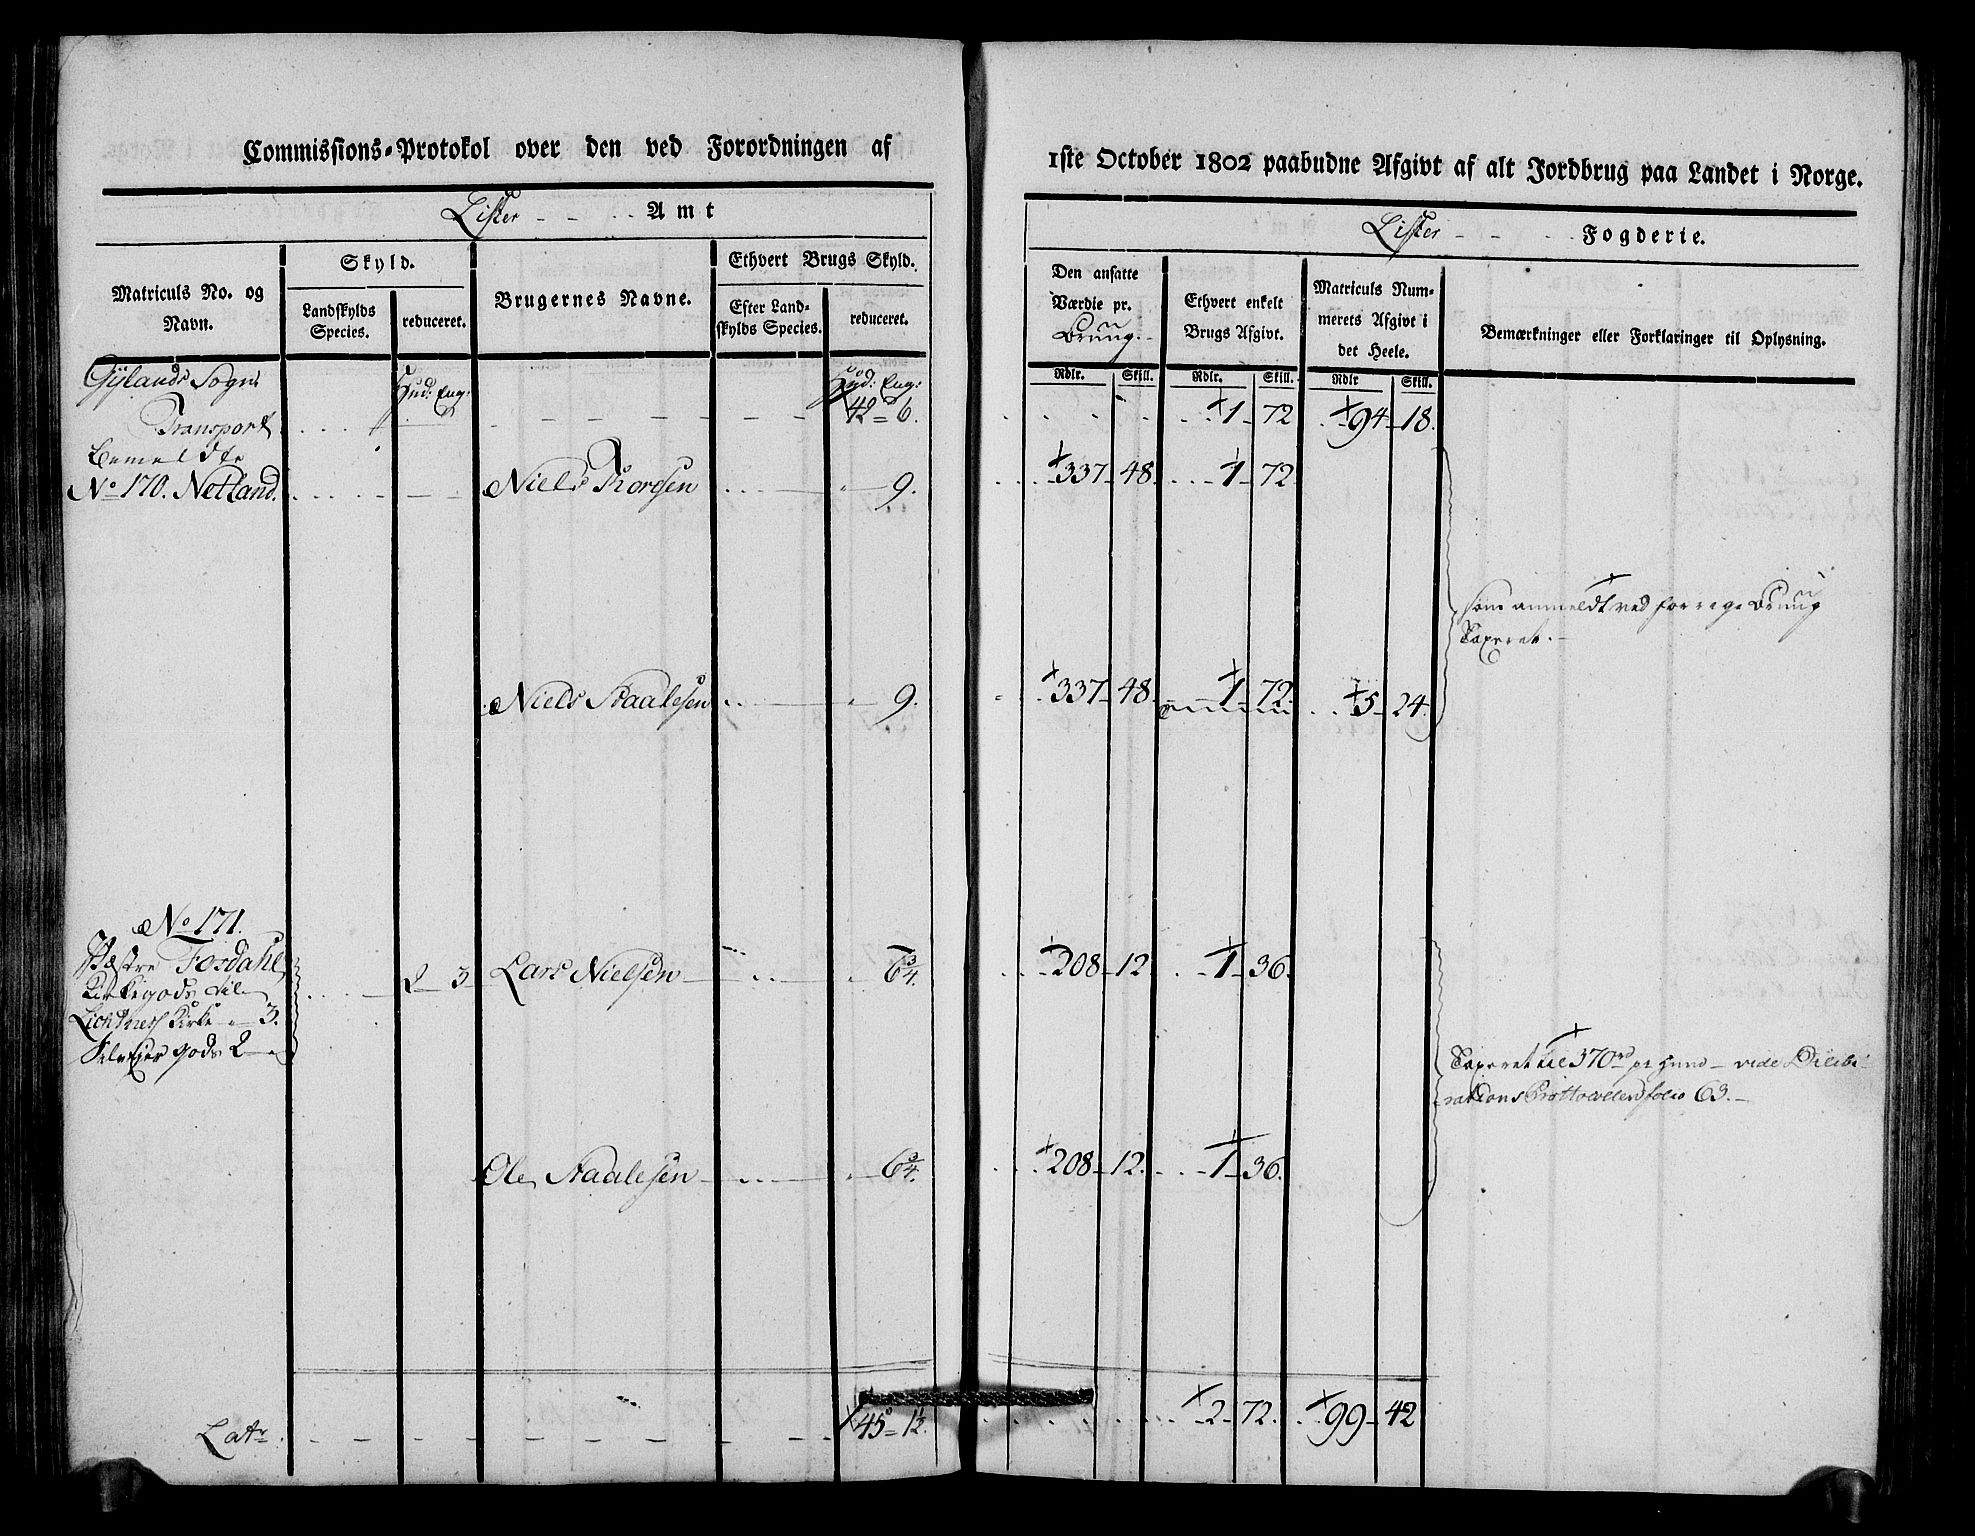 Commissions-Protokol over den ved Forordningen af
Lister - - Amt
Matriculs No. og Navn.
Skyld.
Landskylds Species.
reduceret.
Brugernes Navne.
Ethvert Brugs Skyld.
Efter Landskylds Species.
reduceret.
Gylands Sogn
Hud: Eng:
Hud: Eng:
Transport
42 - 6.
Bemeldte
No 170. Netland.
Niels Thorsen
9.
Niels Staalesen
9.
No 171.
Westre Fosdahl
2 3
Lars Nielsen
6 3/4.
Kirkegods til
Kirke 3.
gods 2
Ole Staalesen
6 3/4.
Latr
45 - 1 1/2.
1ste October 1802 paabudne Afgivt af alt Jordbrug paa Landet i Norge.
Lister - - Fogderie.
Den ansatte Værdie pr. Bruug.
Ethvert enkelt Brugs Afgivt.
Matriculs Nummerets Afgivt i det Heele.
Bemærkninger eller Forklaringer til Oplysning.
Rdlr. Skill. Rdlr. Skill. Rdlr Skill.
1 - 72 94 - 18.
337 - 48. 1 - 72
som anmeldt ved forrige Bruug
Taxeret. -
337 - 48. 1 - 72. 5 - 24.
208 - 12. 1 - 36.
Taxeret til 370 rd pr Huud - vide Delibe-
rations Prottocollen folio 63. -
208 - 12. 1 - 36.
2 - 72. 99 - 42